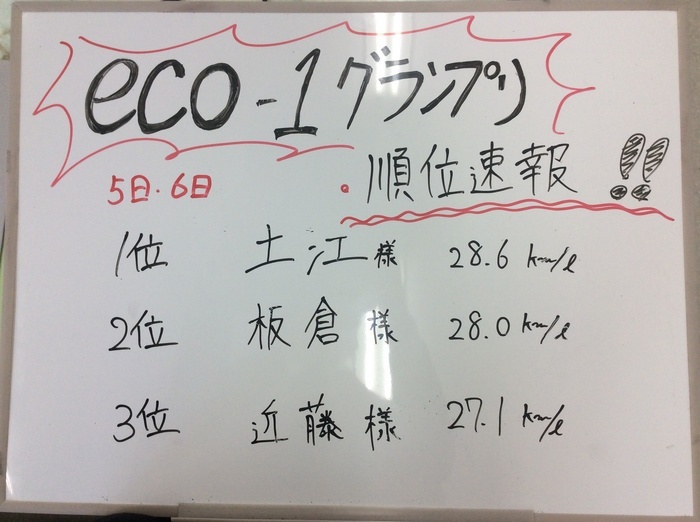 eco-1グランプリ
5日・6日
・順位速報!!
1位 土江様 28.6 km/l
2位 板倉様 28.0 km/l
3位 近藤様 27.1 km/l